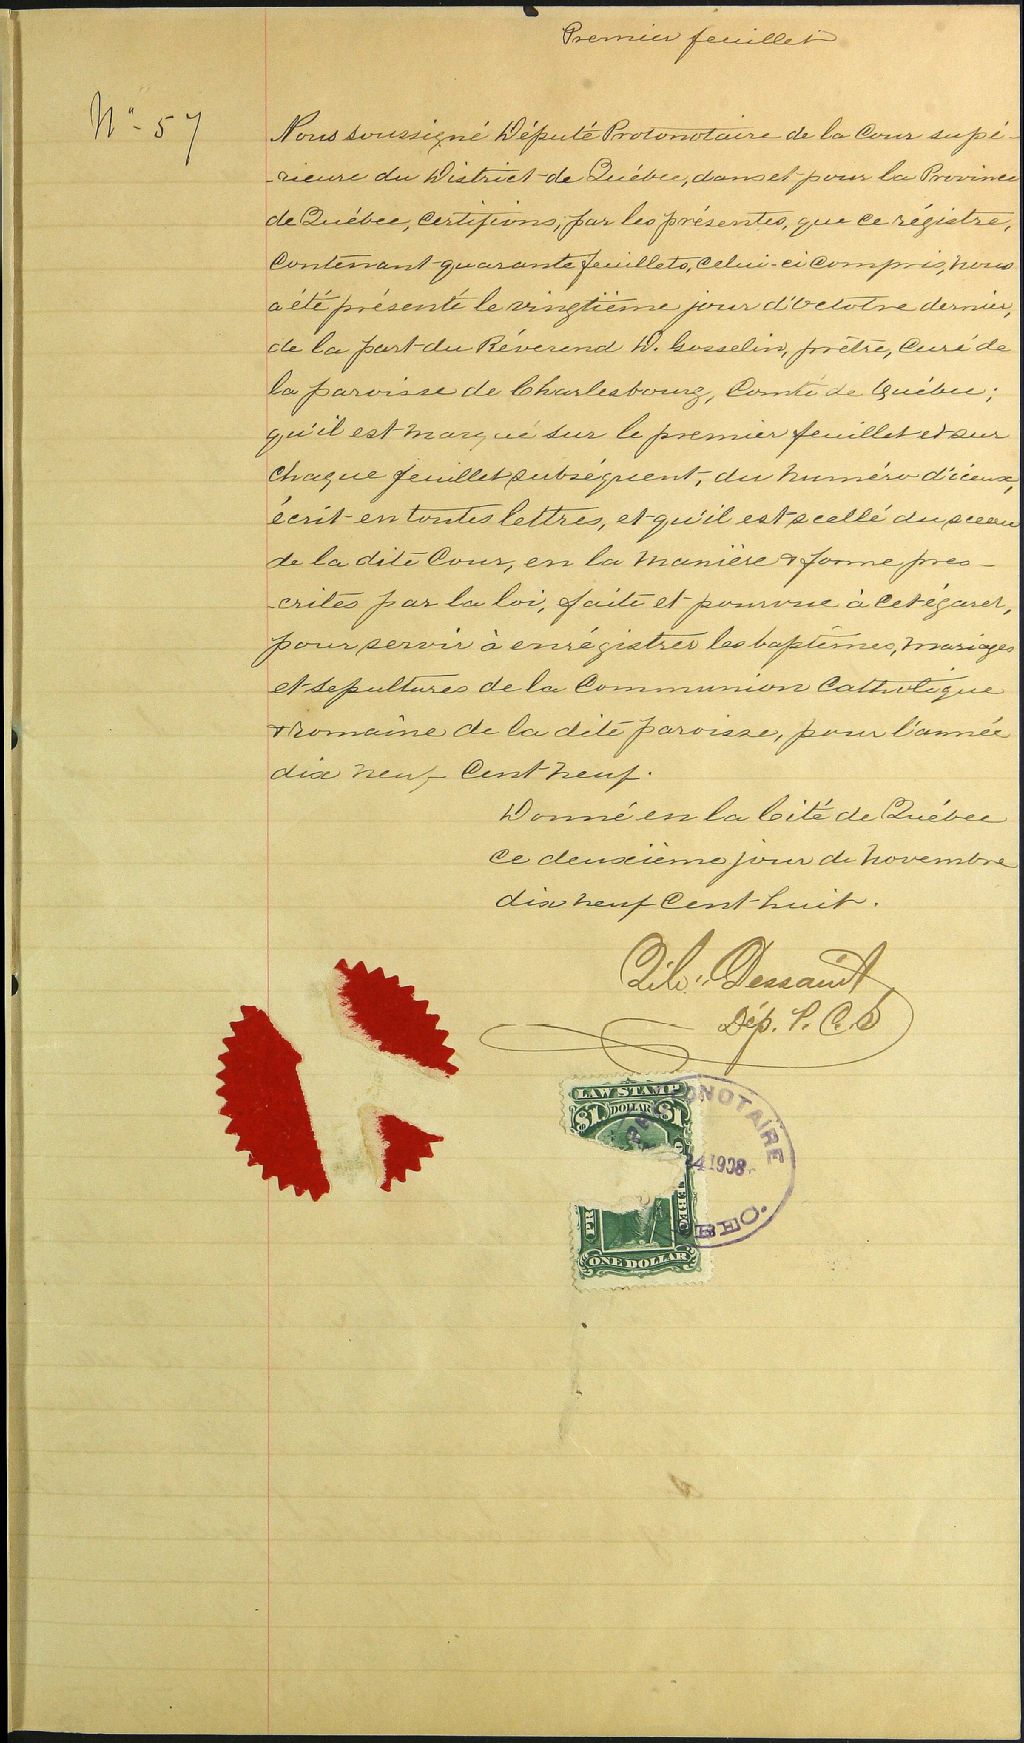 Premier feuillet
No- 57
Nous soussigné Député Protonotaire de la Cour supé-
-rieure du District de Québec, dans et pour la Province
de Québec, certifions, par les présentes, que ce régistre,
contenant quarante feuillets, celui-ci compris, nous
a été présenté le vingtième jour d'Octobre dernier,
de la part du Révérend D. Gosselin, prêtre, Curé de
la paroisse de Charlesbourg, Comté de Québec;
qu'il est marqué sur le premier feuillet et sur
chaque feuillet subséquent, du numéro d'iceux,
écrit en toutes lettres, et qu'il est scellé du sceau
de la dite Cour, en la manière & forme pres-
-crites par la loi, faite et pourvue à cet égard,
pour servir à enrégistrer les baptêmes, mariages
et sepultures de la Communion Catholique
& romaine de la dite paroisse, pour l'année
dix neuf Cent neuf.
Donné en la Cité de Québec
ce deuxième jour de Novembre
dix neuf Cent huit.
Dessault
Dép. P. C. S
LAW STAMP
$1 DOLLAR $1
ONOTAIRE
1908
BEC
EBEC
PR
ONE DOLLAR